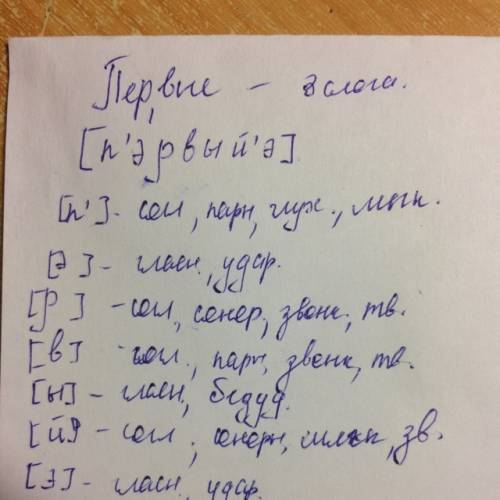 Первые - слога.
[п'эрвый'э]
[п'] - сол, парн, глух., мягк.
[э] - гласн, удар.
[р] - сол, сонор, звонк, тв.
[в] сол., парн, звонк, тв.
[ы] - гласн, безуд.
[й'] - сол, сонорн, мягк, зв.
[э] - гласн, удар